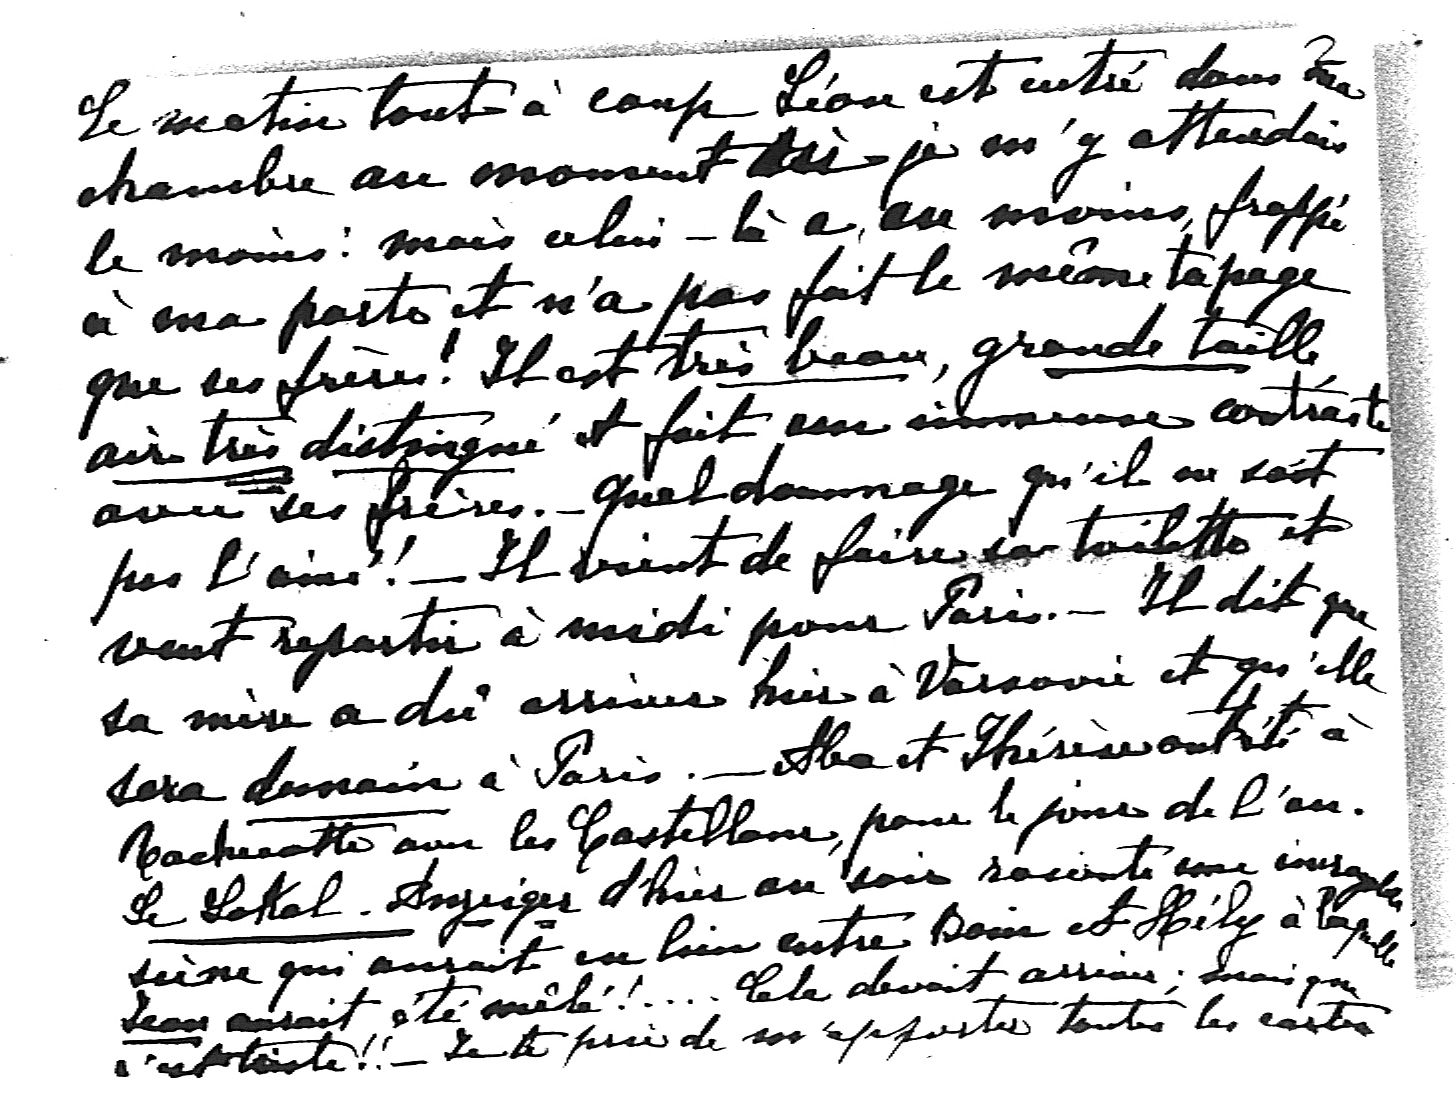 Le matin tout à coup Léon est entré dans ma
chambre au moment où je m'y attendais
le moins: mais celui-là a, au moins, frappé
à ma porte et n'a pas fait le même tapage
que ses frères! Il est très beau, grande taille,
air très distingué et fait un immense contraste
avec ses frères. - Quel dommage qu'il ne soit
pas l'aîné! - Il vient de faire sa toilette et
veut repartir à midi pour Paris. - Il dit que
sa mère a dû arriver hier à Varsovie et qu'elle
sera demain à Paris. - Aba et Thérèse ont été à
Rochecotte avec les Castellane, pour le jour de l'an.
Le Lokal-Anzeiger d'hier au soir raconte une
scène qui aurait eu lieu entre Boni et Hély à laquelle
Jean aurait été mêlé!.... Cela devait arriver; mais que
c'est triste!! - Je te prie de m'apporter toutes les cartes